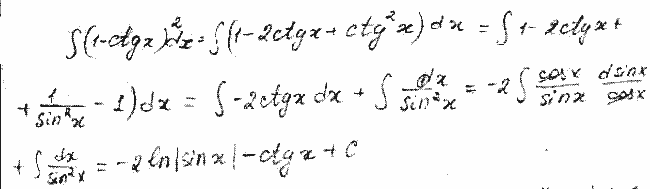 ∫(1-ctgx)²dx = ∫(1-2ctgx + ctg²x)dx = ∫1-2ctgx +
+ 1/sin²x - 1)dx = ∫-2ctgx dx + ∫ dx/sin²x = -2∫ cosx/sinx dsinx/cosx
+ ∫ dx/sin²x = -2 ln|sinx| - ctgx + C